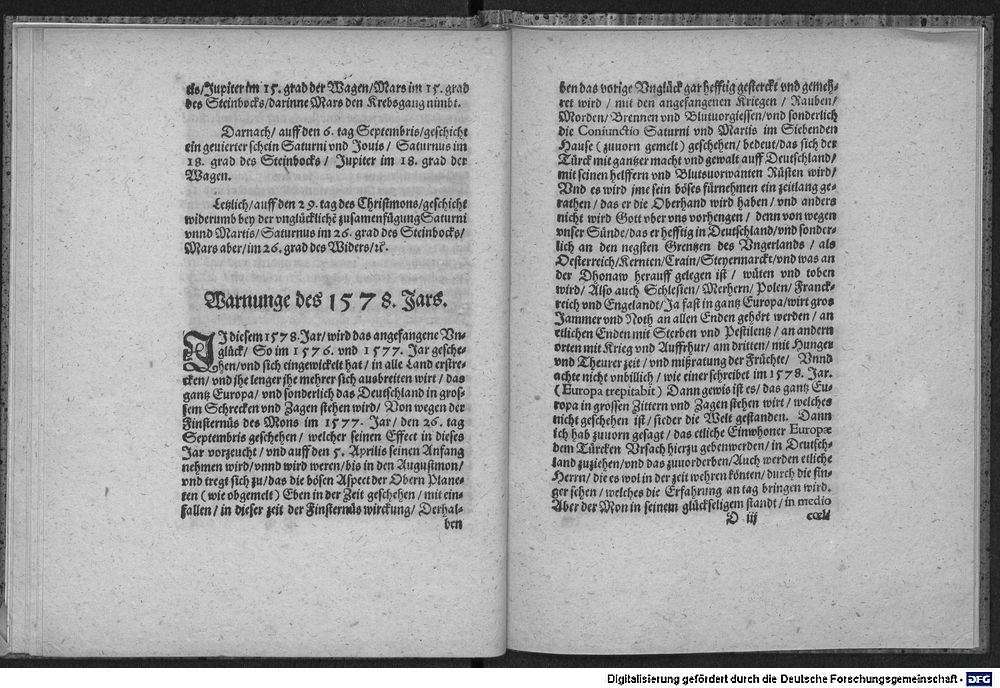 cks/Jupiter im 15. grad der Wagen/Mars im 15. grad
des Steinbocks/darinne Mars den Krebsgang nimbt.
Darnach/ auff den 6. tag Septembris/geschicht
ein geuierter schein Saturni vnd Jouis/ Saturnus im
18. grad des Steinbocks/ Jupiter im 18. grad der
Wagen.
Letzlich/auff den 29. tag des Christmons/geschicht
widerumb bey der vnglücklichē zusamenfügung Saturni
vnnd Martis/Saturnus im 26. grad des Steinbocks/
Mars aber/im 26. grad des Widers/ꝛc̄.
Warnunge des 1578. Jars.
IJ diesem 1578. Jar/wird das angefangene Vn-
glück/ So im 1576. vnd 1577. Jar gesche-
hen/vnd sich eingewickelt hat/ in alle Land erstre-
cken/vnd jhe lenger jhe mehrer sich ausbreiten wirt/ das
gantz Europa/ vnd sonderlich das Deutschland in gros-
sem Schrecken vnd Zagen stehen wird/ Von wegen der
Finsternüs des Mons im 1577. Jar/ den 26. tag
Septembris geschehen/ welcher seinen Effect in dieses
Jar vorzeucht/ vnd auff den 5. Aprilis seinen Anfang
nehmen wird/vnnd wird weren/bis in den Augustmon/
vnd tregt sich zu/das die bösen Aspect der Obern Plane-
ten (wie obgemelt) Eben in der Zeit geschehen/ mit ein-
fallen/ in dieser zeit der Finsternüs wirckung/ Derhal-
ben
ben das vorige Vnglück gar hefftig gesterckt vnd gemeh-
ret wird/ mit den angefangenen Kriegen/ Rauben/
Morden/ Brennen vnd Blutuorgiessen/vnd sonderlich
die Coniunctio Saturni vnd Martis im Siebenden
Hause (zuuorn gemelt) geschehen/ bedeut/das sich der
Türck mit gantzer macht vnd gewalt auff Deutschland/
mit seinen helffern vnd Blutsuorwanten Rüsten wird/
Vnd es wird jme sein böses fürnehmen ein zeitlang ge-
rathen/ das er die Oberhand wird haben/ vnd anders
nicht wird Gott vber vns vorhengen/ denn von wegen
vnser Sünde/das er hefftig in Deutschland/vnd sonder-
lich an den negsten Grentzen des Vngerlands/ als
Oesterreich/Kernten/Crain/Steyermarckt/vnd was an
der Dhonaw herauff gelegen ist/ wüten vnd toben
wird/ Also auch Schlesien/ Merhern/ Polen/ Franck-
reich vnd Engelandt/Ja fast in gantz Europa/wirt gros
Jammer vnd Noth an allen Enden gehört werden/ an
etlichen Enden mit Sterben vnd Pestilentz/ an andern
orten mit Krieg vnd Auffrhur/ am dritten/ mit Hunger
vnd Theurer zeit/ vnd mißratung der Früchte/ Vnnd
achte nicht vnbillich/ wie einer schreibet im 1578. Jar.
(Europa trepitabit) Dann gewis ist es/ das gantz Eu-
ropa in grossen Zittern vnd Zagen stehen wirt/ welches
nicht geschehen ist/ sieder die Welt gestanden. Dann
ich hab zuuorn gesagt/ das etliche Einwhoner Europæ
dem Türcken Vrsach hierzu geben werden/ in Deutsch-
land zuziehen/vnd das zuuorderben/Auch werden etliche
Herrn/ die es wol in der zeit wehren könten/ durch die fin-
ger sehen/ welches die Erfahrung an tag bringen wird.
Aber der Mon in seinem glückseligem standt/ in medio
D iij cœli
Digitalisierung gefördert durch die Deutsche Forschungsgemeinschaft - DFG